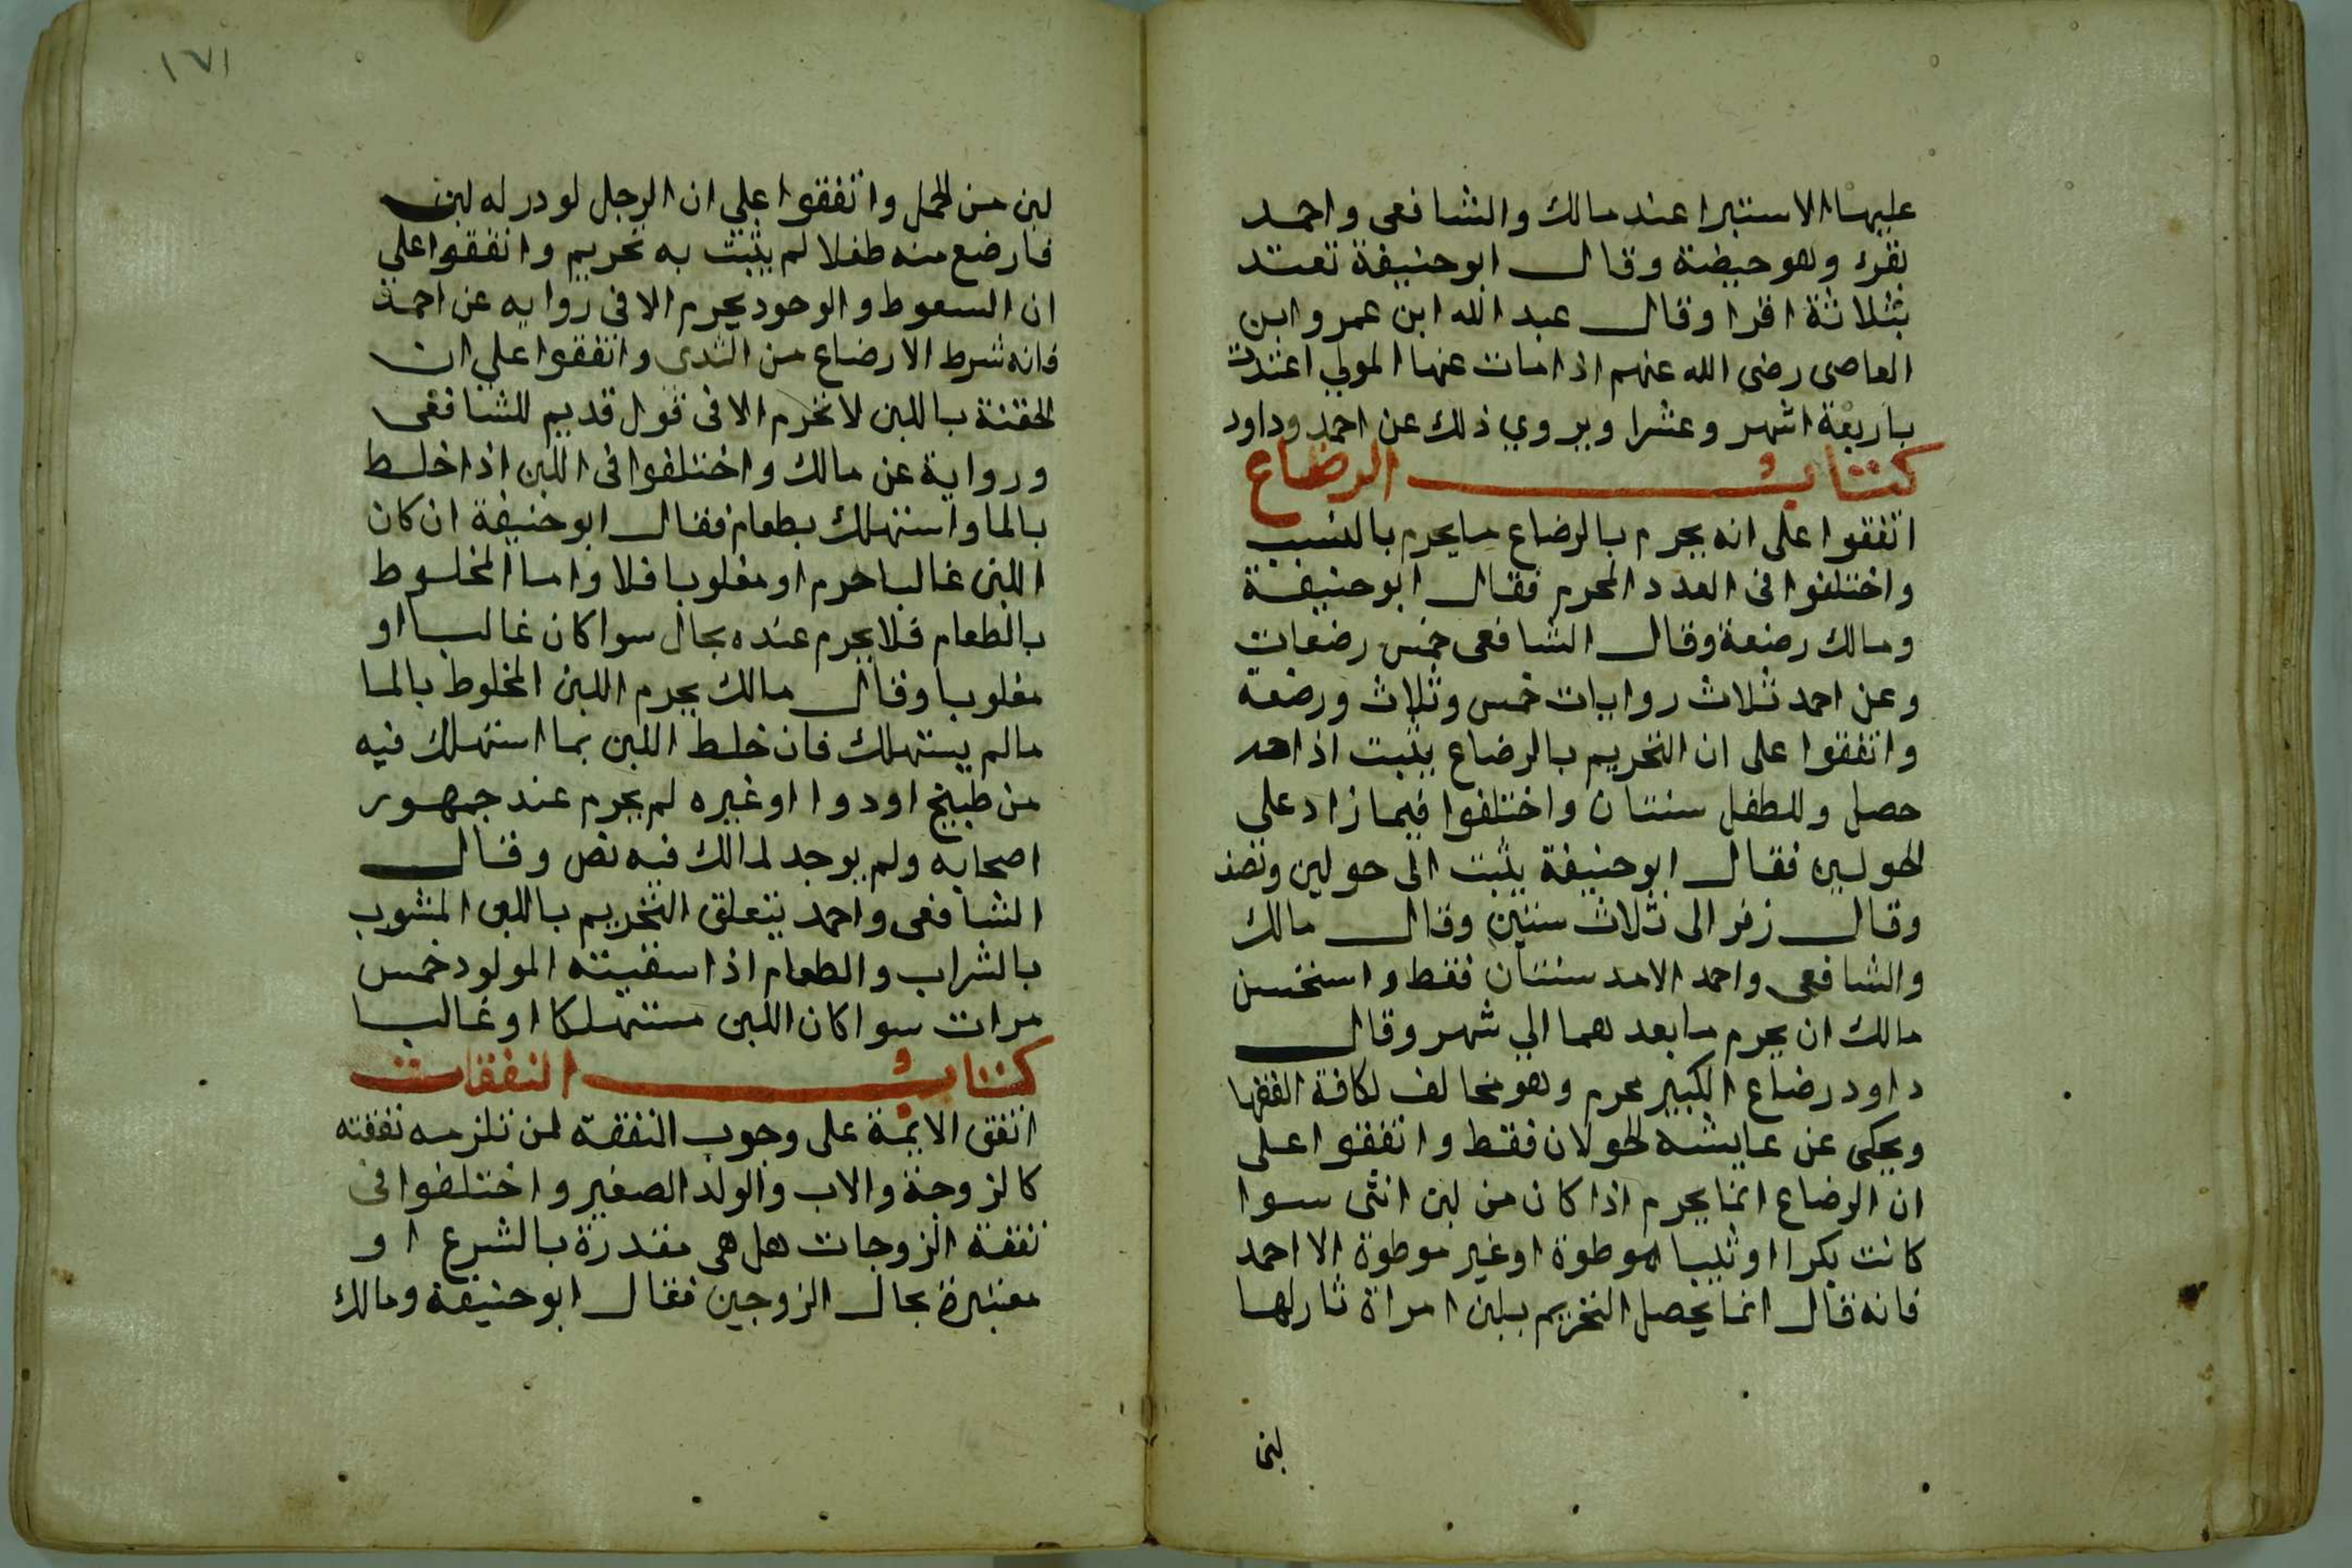 عليها الاستبرا عند مالك والشافعى واحمد
بقرء وهو حيضة وقال ابو حنيفة تعتد
بثلاثة اقرا وقال عبد الله ابن عمرو ابن
العاصى رضى الله عنهم اذا مات عنها المولي اعتدت
باربعة اشهر وعشرا ويروي ذلك عن احمد وداود
كتاب الرضاع
اتفقوا على انه يحرم بالرضاع ما يحرم بالنسب
واختلفوا فى العدد المحرم فقال ابو حنيفة
ومالك رضعة وقال الشافعى خمس رضعات
وعن احمد ثلاث روايات خمس وثلاث ورضعة
واتفقوا على ان التحريم بالرضاع يثبت اذا
حصل وللطفل سنتان واختلفوا فيما زاد على
الحولين فقال ابو حنيفة يثبت الى حولين ونصف
وقال زفر الى ثلاث سنين وقال مالك
والشافعى واحمد الامد سنتان فقط واستحسن
مالك ان يحرم ما بعدهما الي شهر وقال
داود رضاع الكبير محرم وهو مخالف لكافة الفقها
ويحكى عن عايشه الحولان فقط واتفقوا على
ان الرضاع انما يحرم اذا كان من لبن انثى سوا
كانت بكرا او ثيبا موطوة او غير موطوة الا احمد
فانه قال انما يحصل التحريم بلبن امراة ثار لها
لبن
١٧١
لبن من الحمل واتفقوا علي ان الرجل لو در له لبن
فارضع منه طفلا لم يثبت به تحريم واتفقوا علي
ان السعوط والوجود يحرم الا فى روايه عن احمد
فانه شرط الارضاع من الثدى واتفقوا علي ان
الحقنة باللبن لا تحرم الا فى قول قديم للشافعى
ورواية عن مالك واختلفوا فى اللبن اذا خلط
بالما واستهلك بطعام فقال ابو حنيفة ان كان
اللبن غالبا حرم او مغلوبا فلا واما المخلوط
بالطعام فلا يحرم عنده بحال سوا كان غالبا او
مغلوبا وقال مالك يحرم اللبن المخلوط بالما
مالم يستهلك فان خلط اللبن بما استهلك فيه
من طبيخ او دوا او غيره لم يحرم عند جمهور
اصحابه ولم يوجد لمالك فيه نص وقال
الشافعى واحمد يتعلق التحريم باللبن المشوب
بالشراب والطعام اذا سقيته المولود خمس
مرات سوا كان اللبن مستهلكا او غالبا
كتاب النفقات
اتفق الايمة على وجوب النفقة لمن تلزمه نفقته
كالزوجة والاب والولد الصغير واختلفوا فى
نفقة الزوجات هل هى مقدرة بالشرع او
معتبرة بحال الزوجين فقال ابو حنيفة ومالك